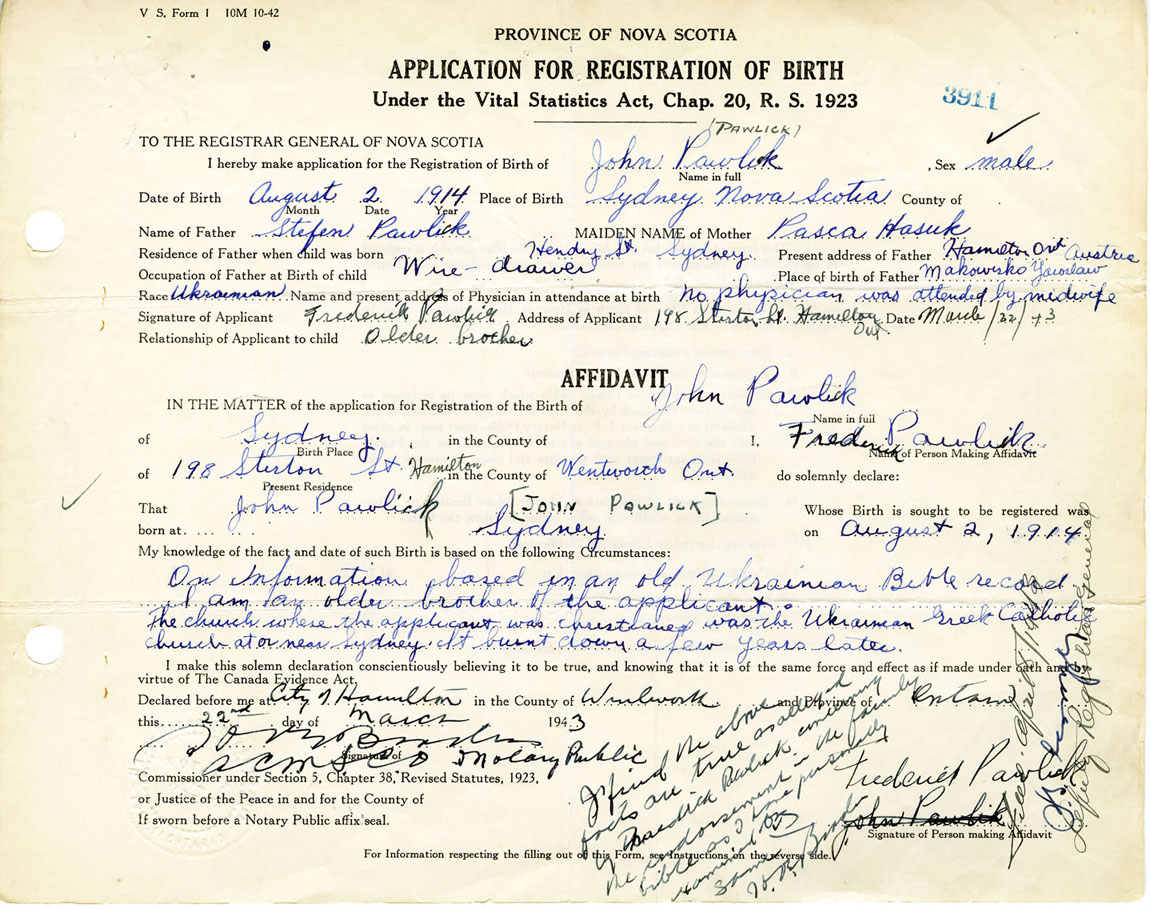 V S. Form 1 10M 10-42
PROVINCE OF NOVA SCOTIA
APPLICATION FOR REGISTRATION OF BIRTH
Under the Vital Statistics Act, Chap. 20, R. S. 1923
3911
(PAWLICK)
TO THE REGISTRAR GENERAL OF NOVA SCOTIA
I hereby make application for the Registration of Birth of John Pawlick , Sex male
Name in full
Date of Birth August 2 1914 Place of Birth Sydney Nova Scotia County of
Month Date Year
Name of Father Stefen Pawlick MAIDEN NAME of Mother Pasca Hasuk
Residence of Father when child was born Hendry St. Sydney. Present address of Father Hamilton Ont
Austria
Occupation of Father at Birth of child Wire-drawer Place of birth of Father Makowisko Yaroslaw
Race Ukrainian Name and present address of Physician in attendance at birth No physician was attended by midwife
Signature of Applicant Frederick Pawlick Address of Applicant 198 Stirton St. Hamilton Ont Date March/22/43
Relationship of Applicant to child Older brother
AFFIDAVIT
IN THE MATTER of the application for Registration of the Birth of John Pawlick
Name in full
of Sydney. in the County of I, Freder Pawlick
Birth Place Name of Person Making Affidavit
of 198 Stirton St Hamilton in the County of Wentworth Ont. do solemnly declare:
Present Residence
That John Pawlick [JOHN PAWLICK] Whose Birth is sought to be registered was
born at Sydney on August 2, 1914
My knowledge of the fact and date of such Birth is based on the following Circumstances:
On information based in an old Ukrainian Bible record.
I am an older brother of the applicant.
The church where the applicant was christianed was the Ukrainian Greek Catholic
church at or near Sydney. It burnt down a few years later.
I make this solemn declaration conscientiously believing it to be true, and knowing that it is of the same force and effect as if made under oath and by
virtue of The Canada Evidence Act,
Declared before me at City of Hamilton in the County of Wentworth and Province of Ontario
this 22nd day of March 1943
Signature of
Notary Public
Commissioner under Section 5, Chapter 38, Revised Statutes, 1923,
or Justice of the Peace in and for the County of
If sworn before a Notary Public affix seal.
I find the above
facts are true as alleged
by Frederick Pawlick, concerning
the endorsement in the family
bible as I have personally
examined
same
Frederick Pawlick
John Pawlik
Signature of Person making Affidavit
Filed April
Deputy Registrar General
For Information respecting the filling out of this Form, see Instructions on the reverse side.